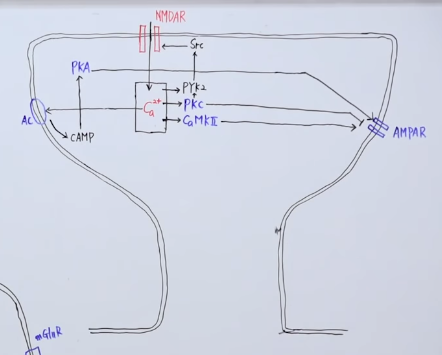 NMDAR
Src
PKA
PYK2
Ca²⁺
PKC
AC
CaMKII
cAMP
AMPAR
mGluR